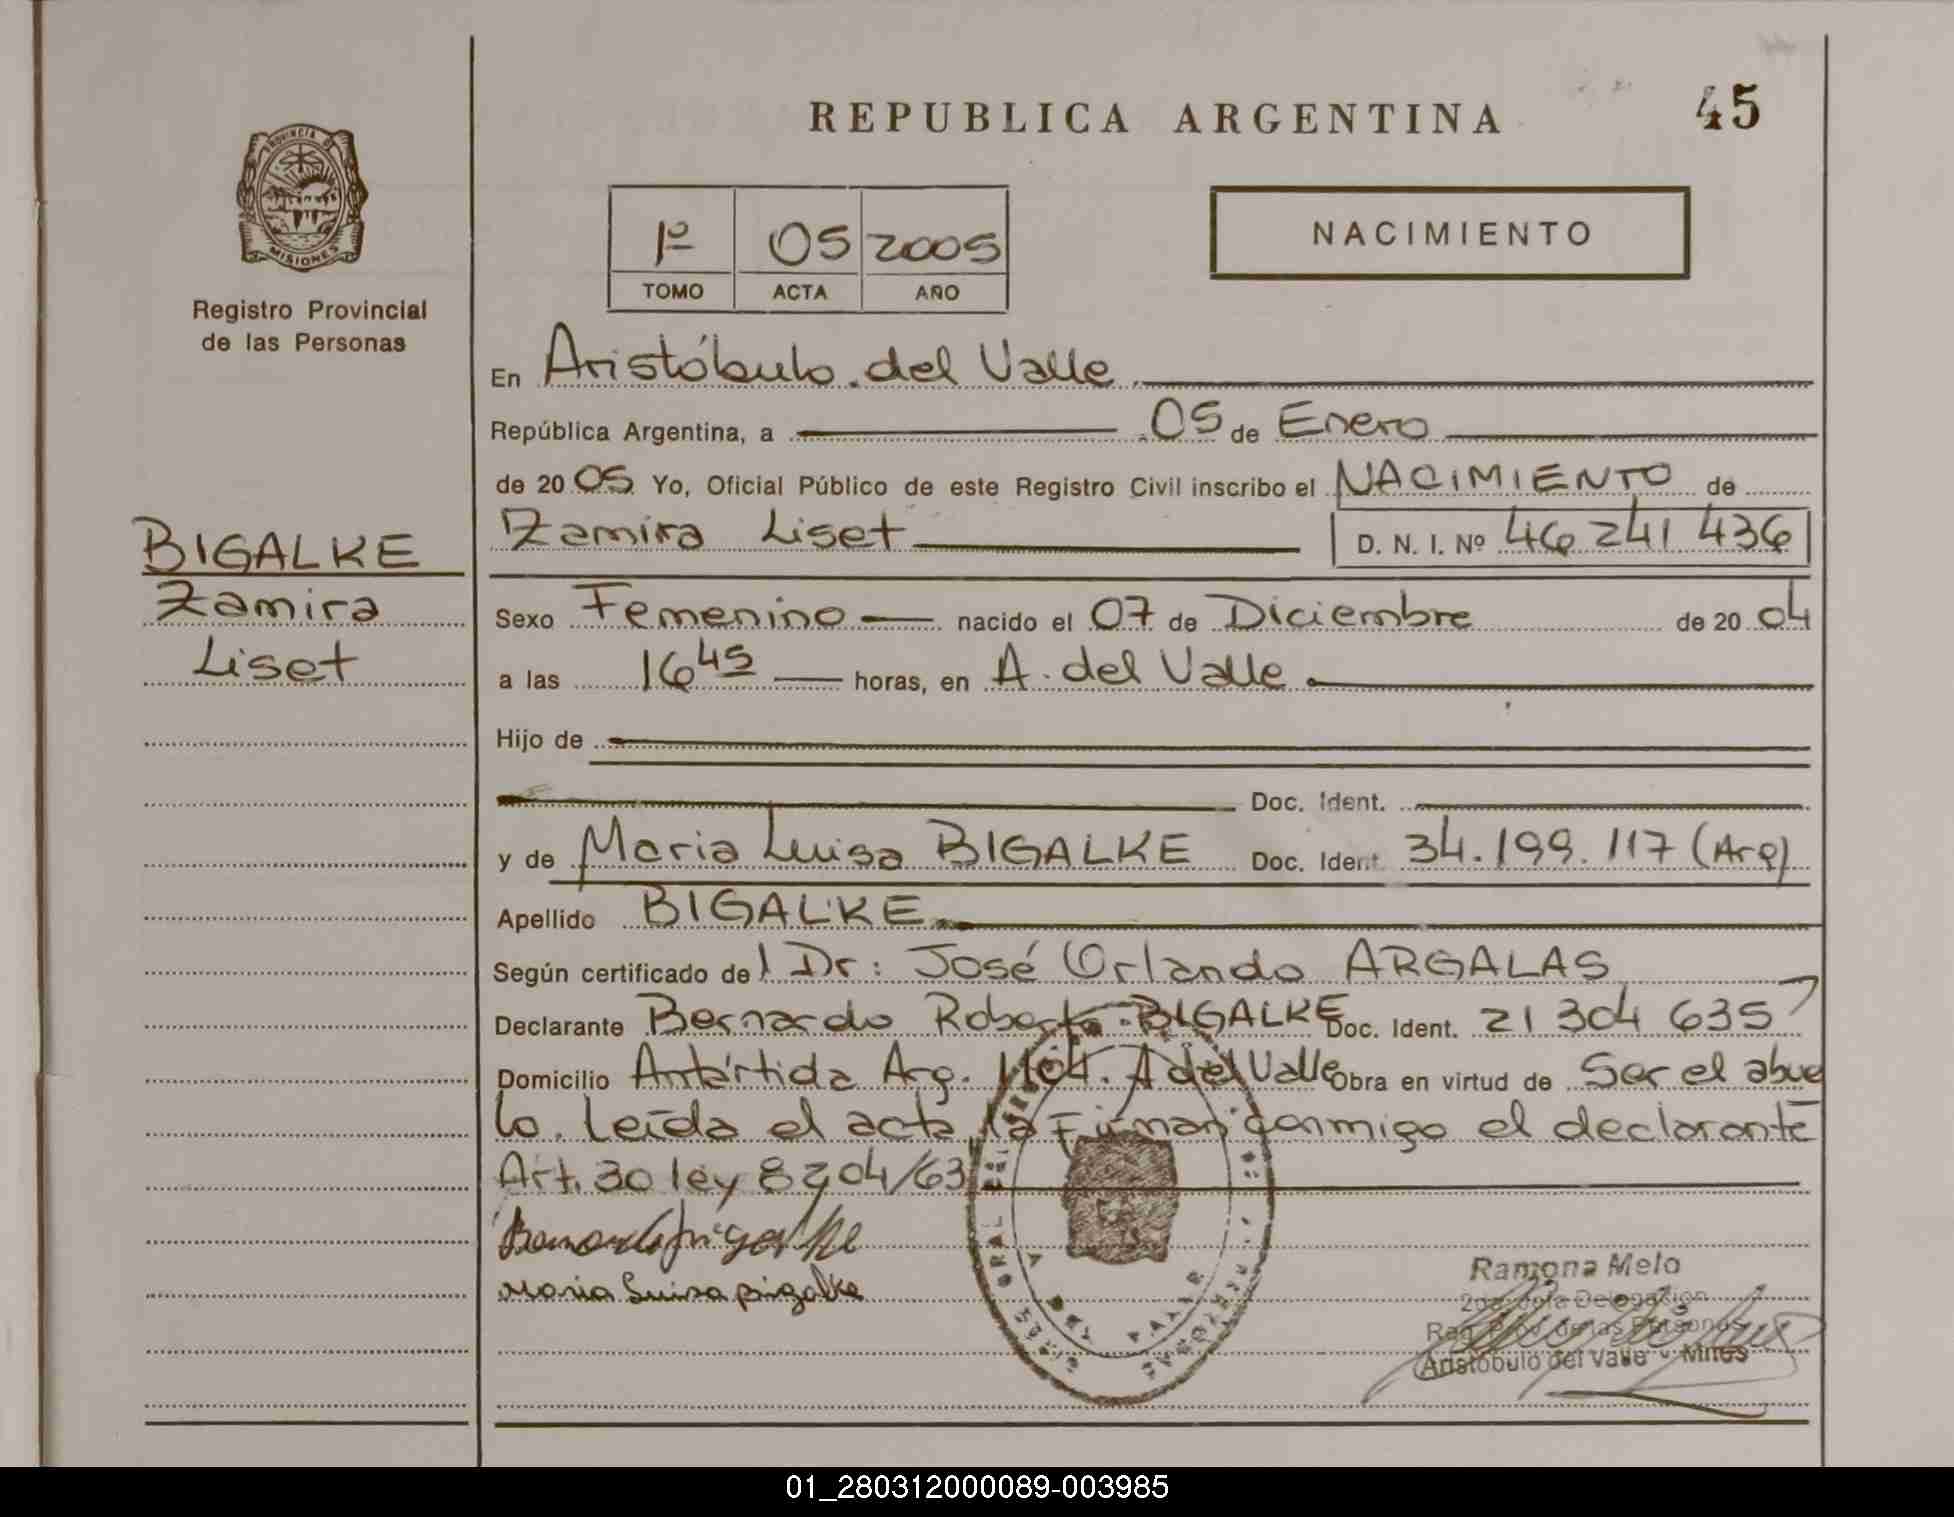 REPUBLICA ARGENTINA
45
PROVINCIA DE
MISIONES
Registro Provincial
de las Personas
1º 05 2005
TOMO ACTA AÑO
NACIMIENTO
En Aristóbulo del Valle
República Argentina, a 05 de Enero
de 2005 Yo, Oficial Público de este Registro Civil inscribo el NACIMIENTO de
Zamira Liset D. N. I. Nº 46 241 436
BIGALKE
Zamira
Liset
Sexo Femenino nacido el 07 de Diciembre de 2004
a las 16 45 horas, en A. del Valle
Hijo de
Doc. Ident.
y de Maria Luisa BIGALKE Doc. Ident. 34.199.117 (Arg)
Apellido BIGALKE
Según certificado del Dr: José Orlando ARGALAS
Declarante Bernardo Roberto BIGALKE Doc. Ident. 21 304 635
Domicilio Antártida Arg. 1104. A del Valle Obra en virtud de Ser el abue
lo. Leída el acta, la Firman conmigo el declarante
Art. 30 ley 8204/63
Maria Luisa bigalke
Ramona Melo
2da. Jefa Delegación
Reg. Prov. de las Personas
Aristóbulo del Valle - Mnes
01_280312000089-003985